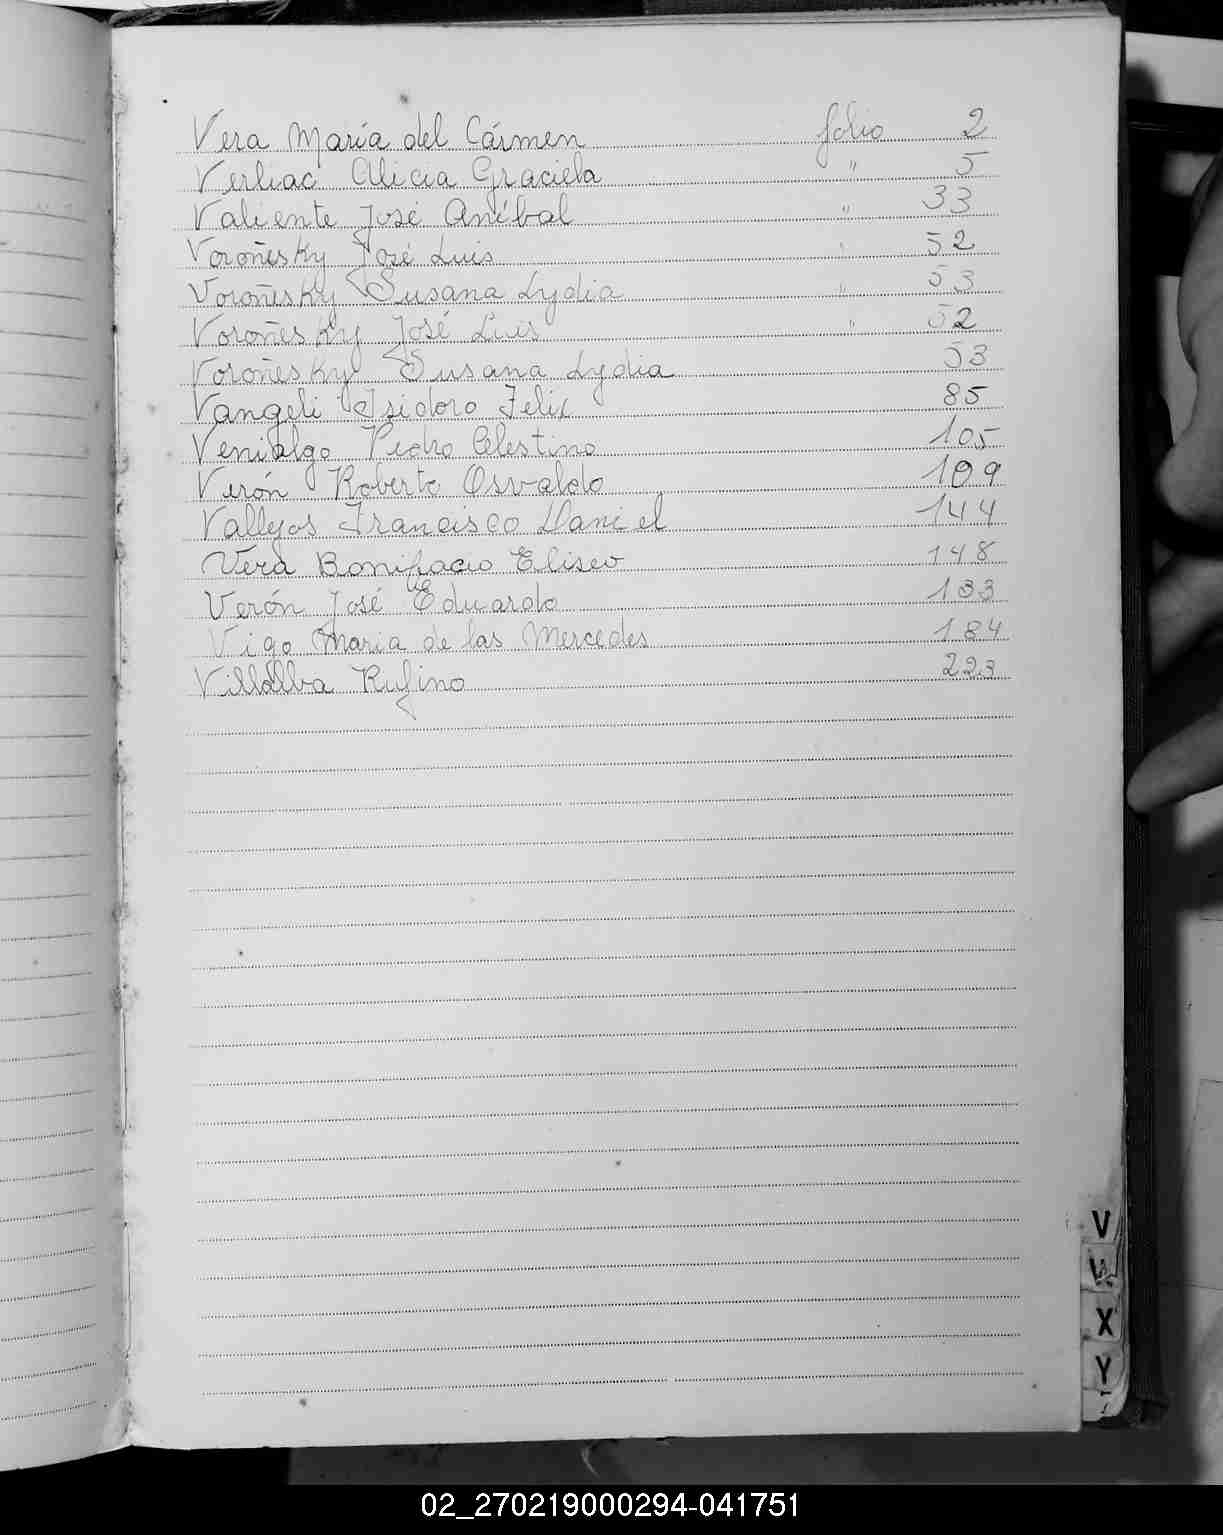 Vera María del Cármen folio 2
Verliac Alicia Graciela " 5
Valiente José Aníbal " 33
Voroñesky José Luis " 52
Voroñesky Susana Lydia " 53
Voroñesky José Luis " 52
Voroñesky Susana Lydia 53
Vangeli Isidoro Felix 85
Venialgo Pedro Celestino 105
Verón Roberto Osvaldo 109
Vallejos Francisco Daniel 144
Vera Bonifacio Eliseo 148
Verón José Eduardo 133
Vigo Maria de las Mercedes 184
Villalba Rufino 223
V
W
X
Y
02_270219000294-041751